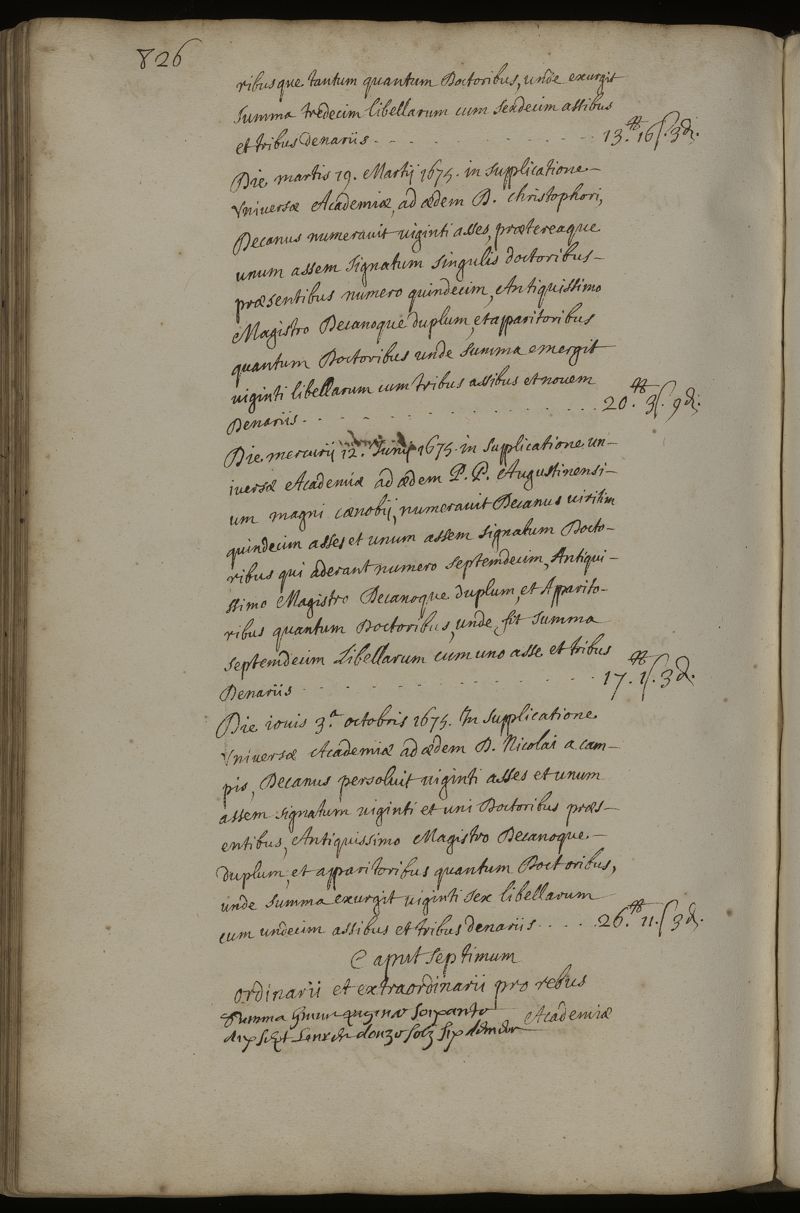 826
ribusque tantum quantum Doctoribus, unde exurgit
summa tredecim libellarum cum sexdecim assibus
et tribus denariis . . . . . . . . . . . 13.# 16 s. 3 d.
Die martis 19. Martij 1675. in supplicatione
Vniversæ Academiæ, ad ædem D. christophori,
Decanus numerauit uiginti asses, prætereaque
unum assem signatum singulis doctoribus
præsentibus numero quindecim, Antiquissimo
Magistro Decanoque duplum, et apparitoribus
quantum Doctoribus unde summa emergit
uiginti libellarum cum tribus assibus et nouem
Denariis . . . . . . . . . . . . . 20.# 3 s. 9 d.
Die mercurij 12. Junij 1675. in supplicatione un-
iuersæ Academiæ ad ædem P. P. Augustinensi-
um magni cœnobij, numerauit Decanus uiritim
quindecim asses et unum assem signatum Docto-
ribus qui aderant numero septemdecim, Antiqui-
ssimo Magistro Decanoque duplum, et Apparito-
ribus quantum Doctoribus, unde fit summa
septemdecim Libellarum cum uno asse et tribus
Denariis . . . . . . . . . . . . . 17.# 1 s. 3 d.
Die iouis 3.a octobris 1675. In supplicatione
Vniuersæ Academiæ ad ædem D. Nicolai a cam-
pis, Decanus persoluit uiginti asses et unum
assem signatum uiginti et uni Doctoribus præs-
entibus, Antiquissimo Magistro Decanoque
duplum, et apparitoribus quantum Doctoribus,
unde summa exurgit uiginti sex libellarum
cum undecim assibus et tribus denariis . . . . . 26.# 11. s 3 d.
Caput septimum
ordinarii et extraordinarii pro rebus
Academiæ
Summa soixante
dix sept liures douze solz six deniers